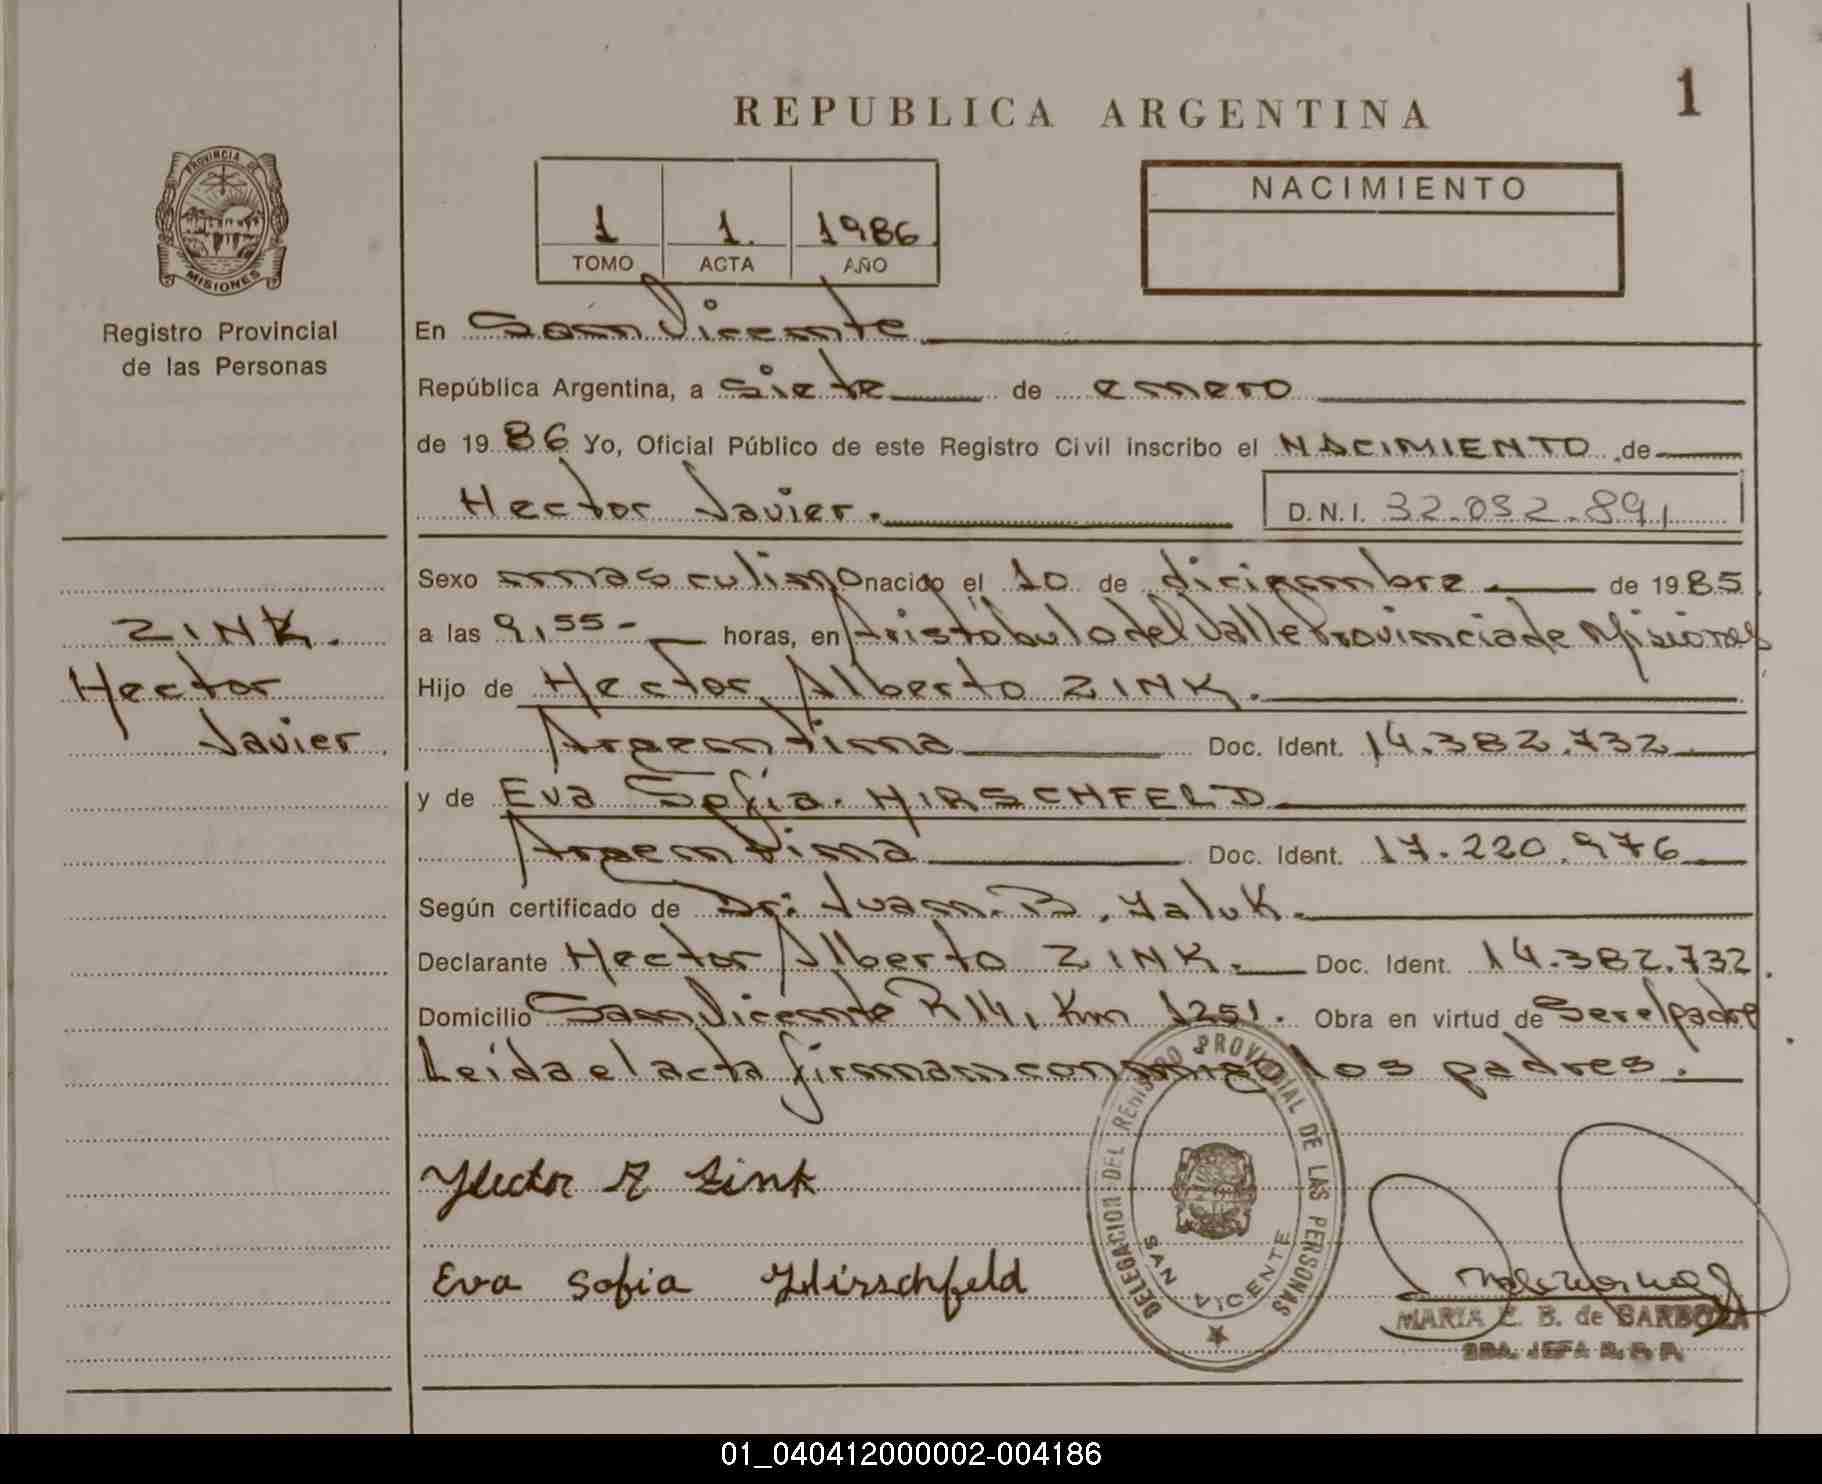 REPUBLICA ARGENTINA
1
PROVINCIA DE
MISIONES
Registro Provincial
de las Personas
1 1. 1986
TOMO ACTA AÑO
NACIMIENTO
En San Vicente
República Argentina, a siete de enero
de 1986 Yo, Oficial Público de este Registro Civil inscribo el NACIMIENTO de
Hector Javier. D.N.I. 32.052.891
Sexo masculino nacido el 10 de diciembre de 1985
ZINK.
Hector
Javier
a las 9,55- horas, en Aristobulo del Valle Provincia de Misiones
Hijo de Hector Alberto ZINK.
Argentina Doc. Ident. 14.382.732
y de Eva Sofia. HIRSCHFELD
Argentina Doc. Ident. 17.220.976
Según certificado de Dr. Juan. B. Yaluk.
Declarante Hector Alberto ZINK. Doc. Ident. 14.382.732.
Domicilio San Vicente R 14, Km 1251. Obra en virtud de Ser el padre
Leida el acta firman conmigo los padres.
Hector A Zink
Eva Sofia Hirschfeld
DELEGACION DEL REGISTRO PROVINCIAL DE LAS PERSONAS
SAN VICENTE
MARIA E. B. de BARBOZA
SBA. JEFA R. P. P.
01_040412000002-004186